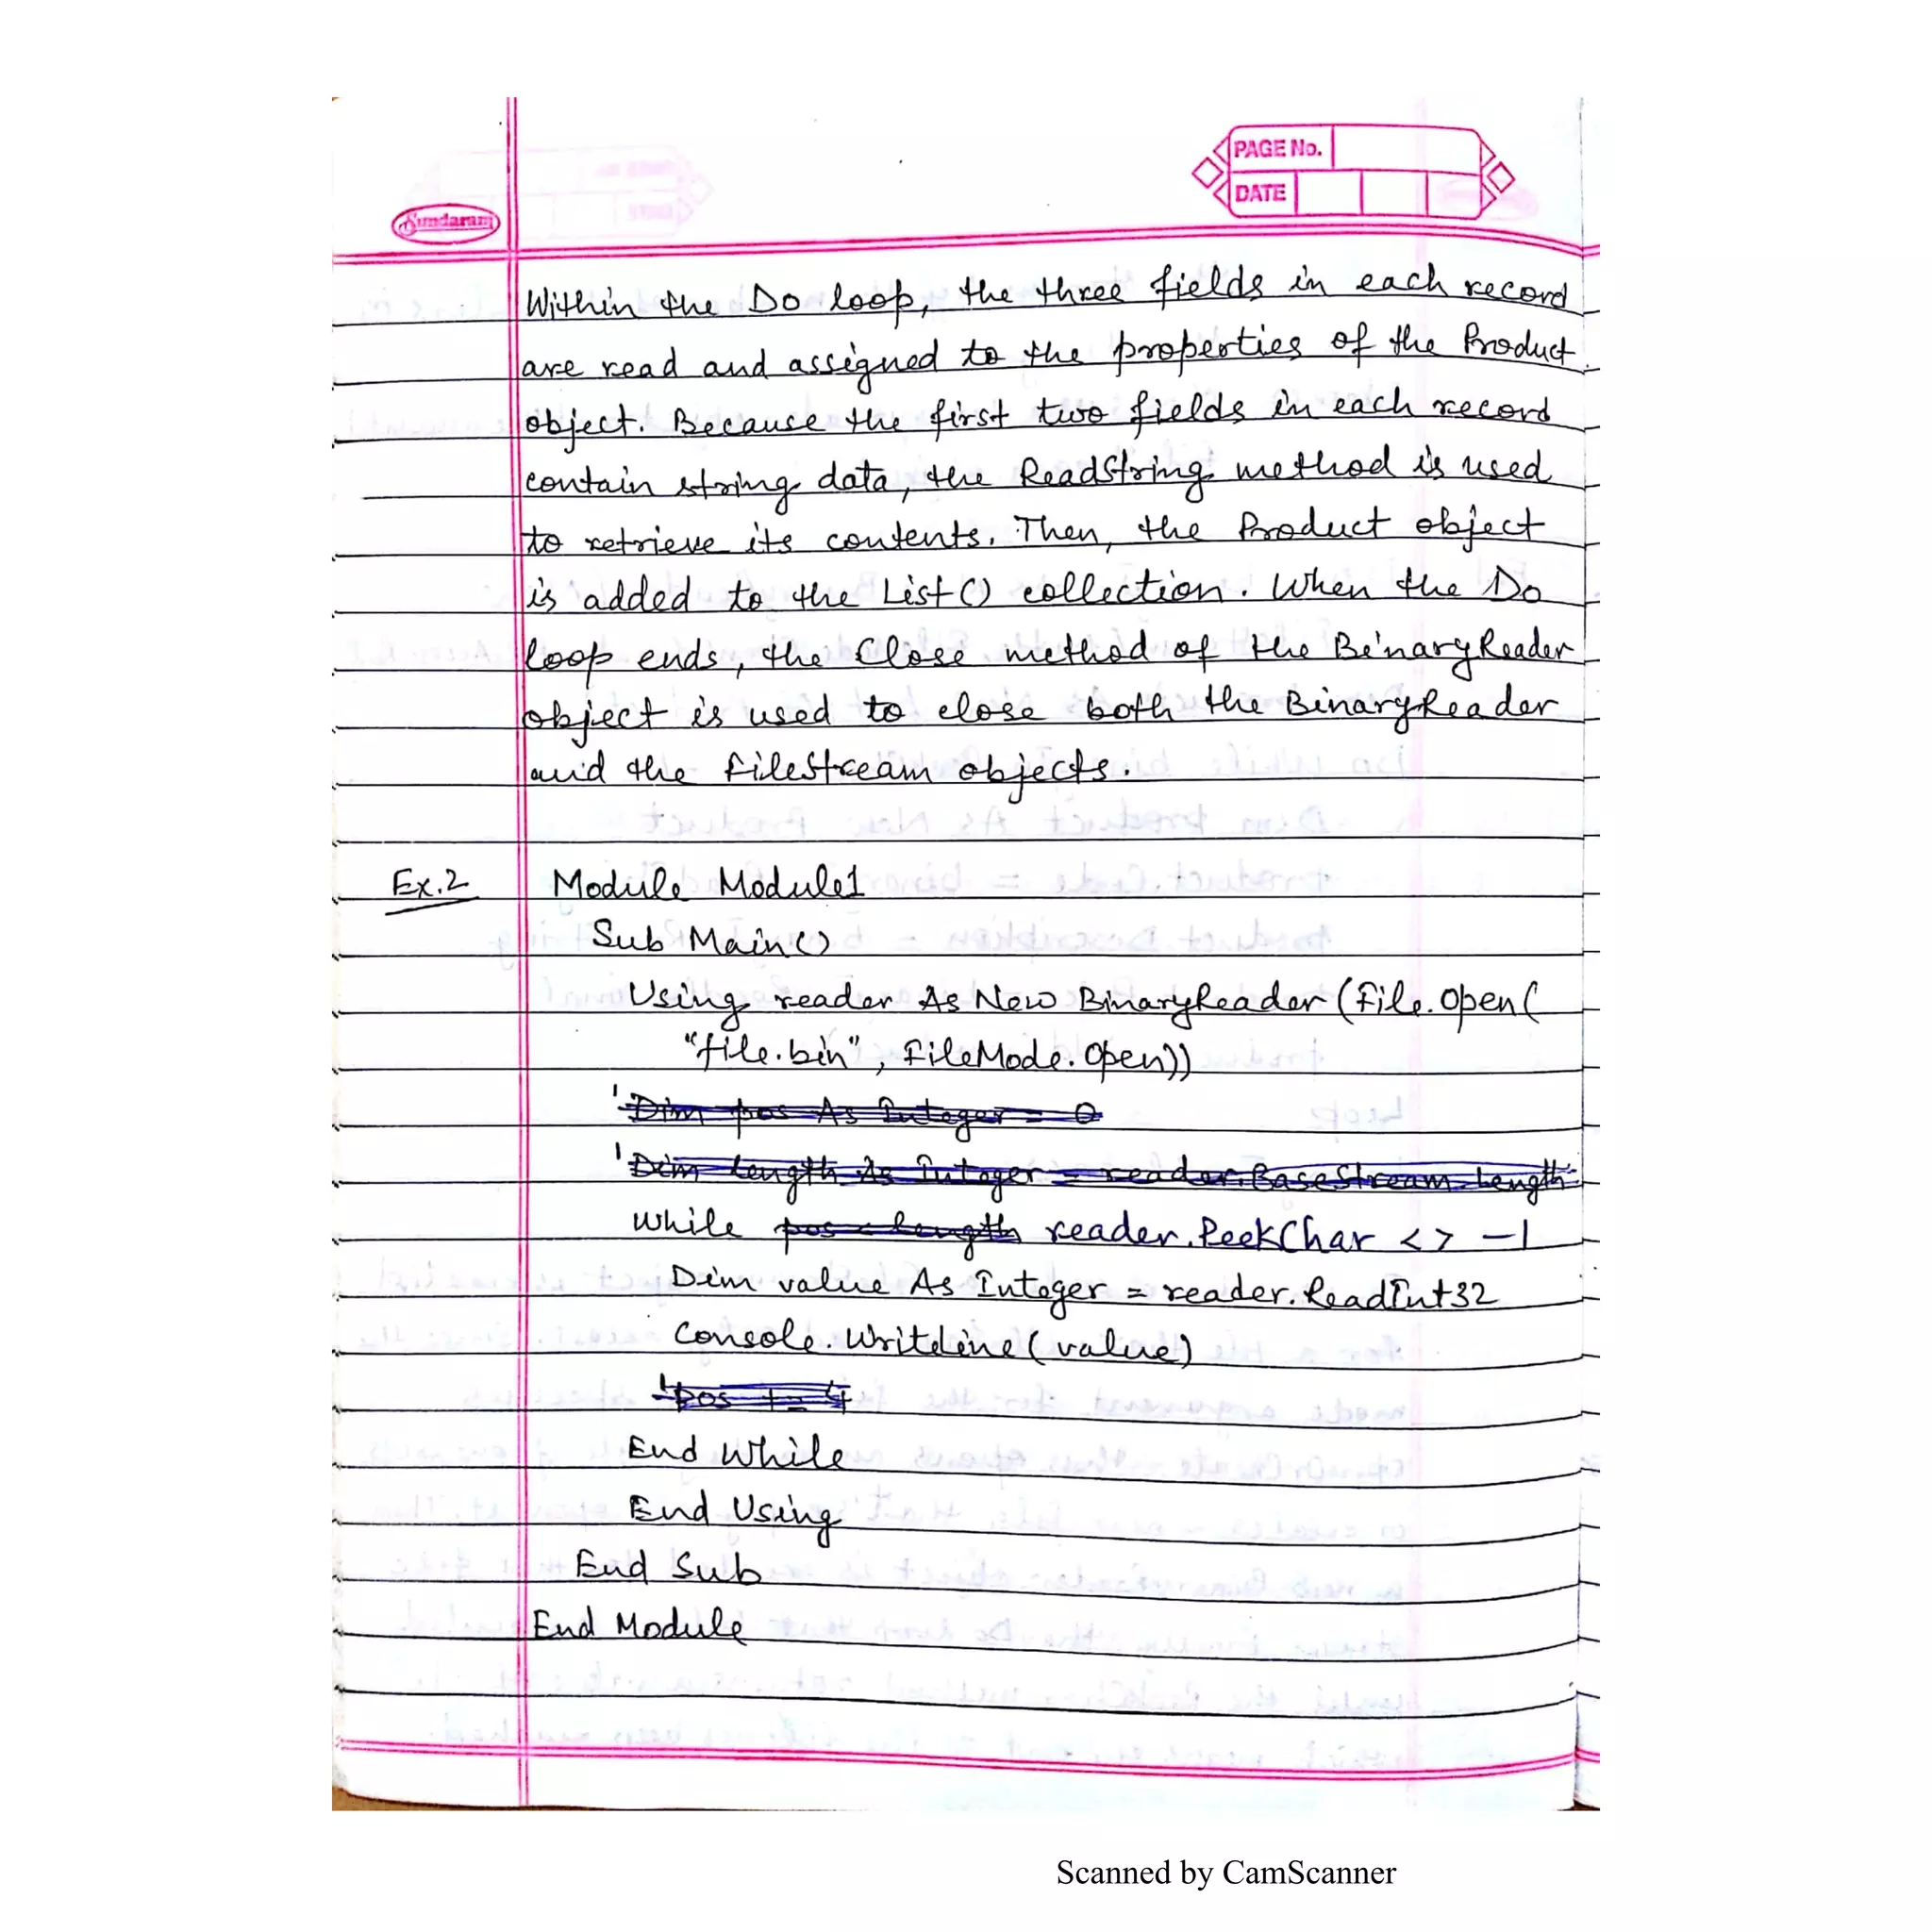 PAGE No.
DATE
Sundaram
Within the Do loop, the three fields in each record
are read and assigned to the properties of the Product
object. Because the first two fields in each record
contain string data, the ReadString method is used
to retrieve its contents. Then, the Product object
is added to the List() collection. When the Do
loop ends, the Close method of the BinaryReader
object is used to close both the BinaryReader
and the FileStream objects.
Ex.2 Module Module1
Sub Main()
Using reader As New BinaryReader(File.Open(
"file.bin", FileMode.Open))
'Dim pos As Integer = 0
'Dim length As Integer = reader.BaseStream.Length
While pos < length reader.PeekChar <> -1
Dim value As Integer = reader.ReadInt32
Console.WriteLine(value)
'pos += 4
End While
End Using
End Sub
End Module
Scanned by CamScanner